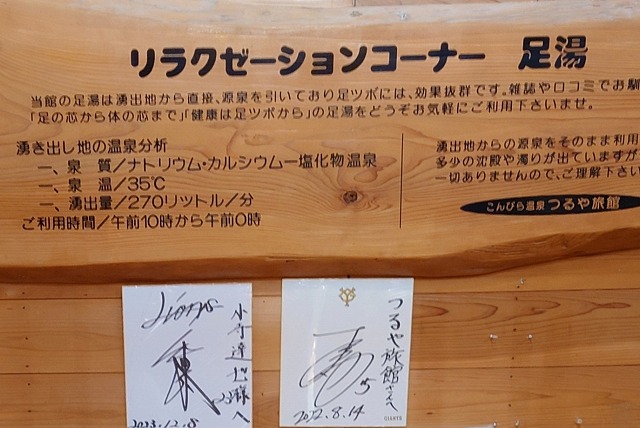 リラクゼーションコーナー 足湯
当館の足湯は湧出地から直接、源泉を引いており足ツボには、効果抜群です。雑誌や口コミでお馴
「足の芯から体の芯まで」「健康は足ツボから」の足湯をどうぞお気軽にご利用下さいませ。
湧き出し地の温泉分析
一、泉 質/ナトリウム・カルシウム一塩化物温泉
一、泉 温/35℃
一、湧出量/270リットル/分
ご利用時間/午前10時から午前0時
湧出地からの源泉をそのまま利用
多少の沈殿や濁りが出ていますが
一切ありませんので、ご理解下さい
こんぴら温泉 つるや旅館
Lions
2023.12.8
つるや旅館さんへ
5
2022.8.14
GIANTS